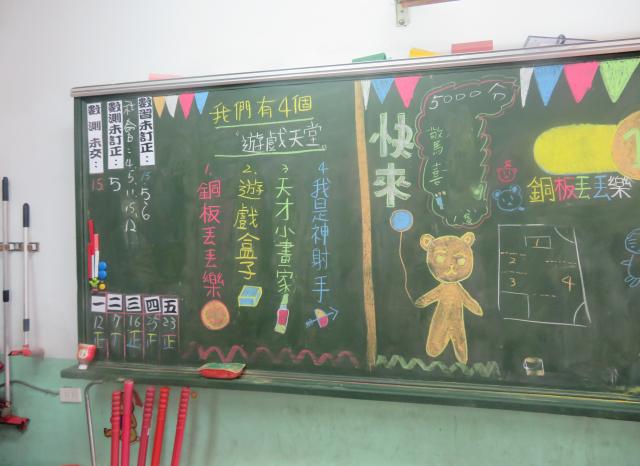 數測未交：
15
數測未訂正：
5
社會B：4、5、11、15、12
數習未訂正：
15、5、6
我們有4個
遊戲天堂
1.銅板丟丟樂
2.遊戲盒子
3.天才小畫家
4.我是神射手
快來
5000分
驚喜
銅板丟丟樂
1
2
3
4
一 二 三 四 五
12 17 16 25 23
正 正 正 正 正